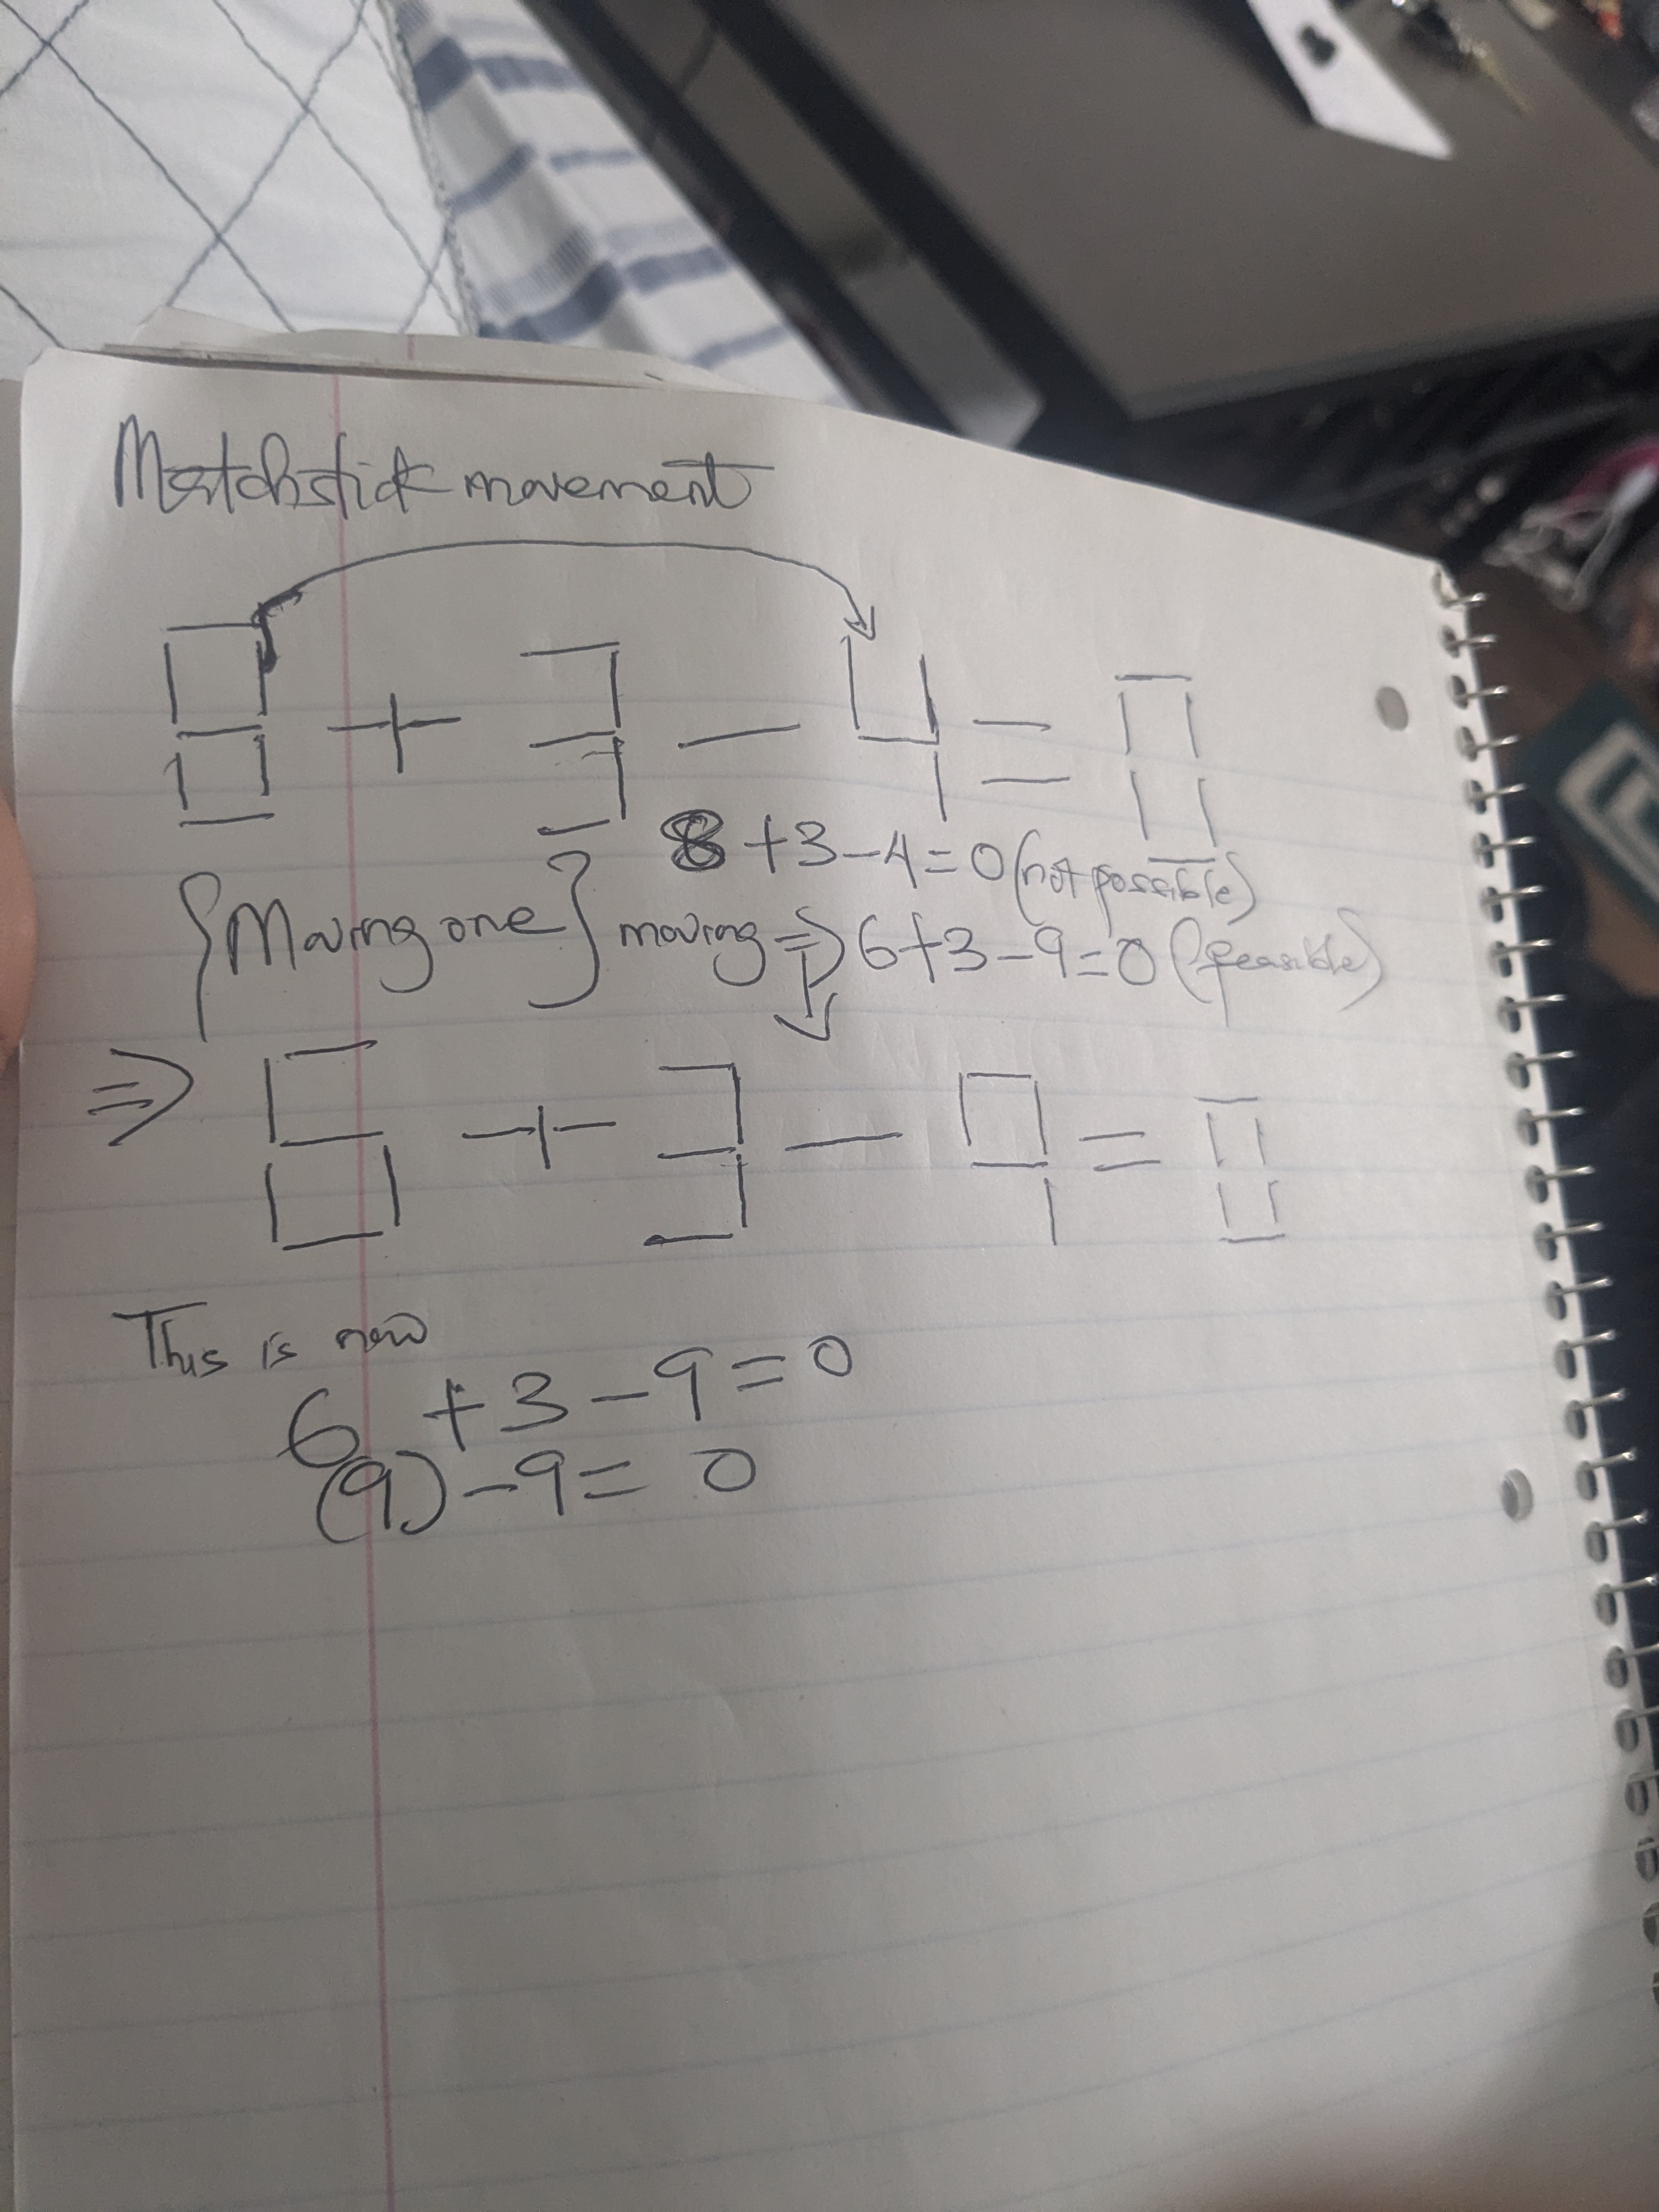 Matchstick movement
8 + 3 - 4 = 0
8+3-4=0(not possible)
{Moving one} moving => 6+3-9=0 (feasible)
=> 6 + 3 - 9 = 0
This is now
6 + 3 - 9 = 0
(9) - 9 = 0